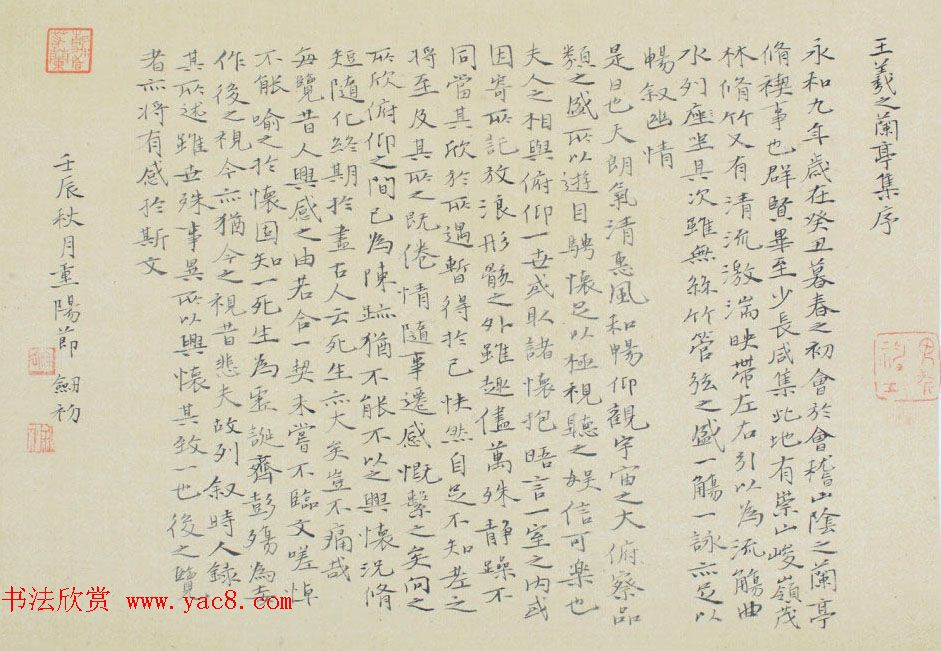 王羲之蘭亭集序
永和九年歲在癸丑暮春之初會於會稽山陰之蘭亭
脩禊事也群賢畢至少長咸集此地有崇山峻嶺茂
林脩竹又有清流激湍映帶左右引以為流觴曲
水列座坐其次雖無絲竹管弦之盛一觴一詠亦足以
暢叙幽情
是日也天朗氣清惠風和暢仰觀宇宙之大俯察品
類之盛所以遊目騁懷足以極視聽之娛信可樂也
夫人之相與俯仰一世或取諸懷抱晤言一室之内或
因寄所託放浪形骸之外雖趣儘萬殊静躁不
同當其欣於所遇暫得於己怏然自足不知老之
將至及其所之既倦情隨事遷感慨繫之矣向之
所欣俯仰之間已為陳跡猶不能不以之興懷況脩
短隨化終期於盡古人云死生亦大矣豈不痛哉
每覽昔人興感之由若合一契未嘗不臨文嗟悼
不能喻之於懷固知一死生為虛誕齊彭殤為妄
作後之視今亦猶今之視昔悲夫故列叙時人錄
其所述雖世殊事異所以興懷其致一也後之覽
者亦將有感於斯文
壬辰秋月重陽節 劍初
书法欣赏 www.yac8.com